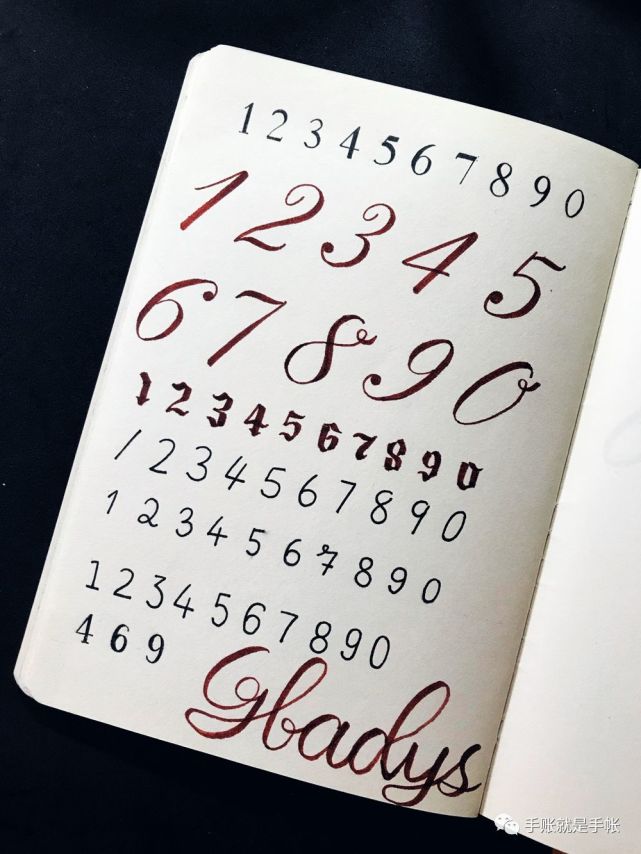 1 2 3 4 5 6 7 8 9 0
1 2 3 4 5
6 7 8 9 0
1 2 3 4 5 6 7 8 9 0
1 2 3 4 5 6 7 8 9 0
1 2 3 4 5 6 7 8 9 0
1 2 3 4 5 6 7 8 9 0
4 6 9
Gladys
手账就是手帐